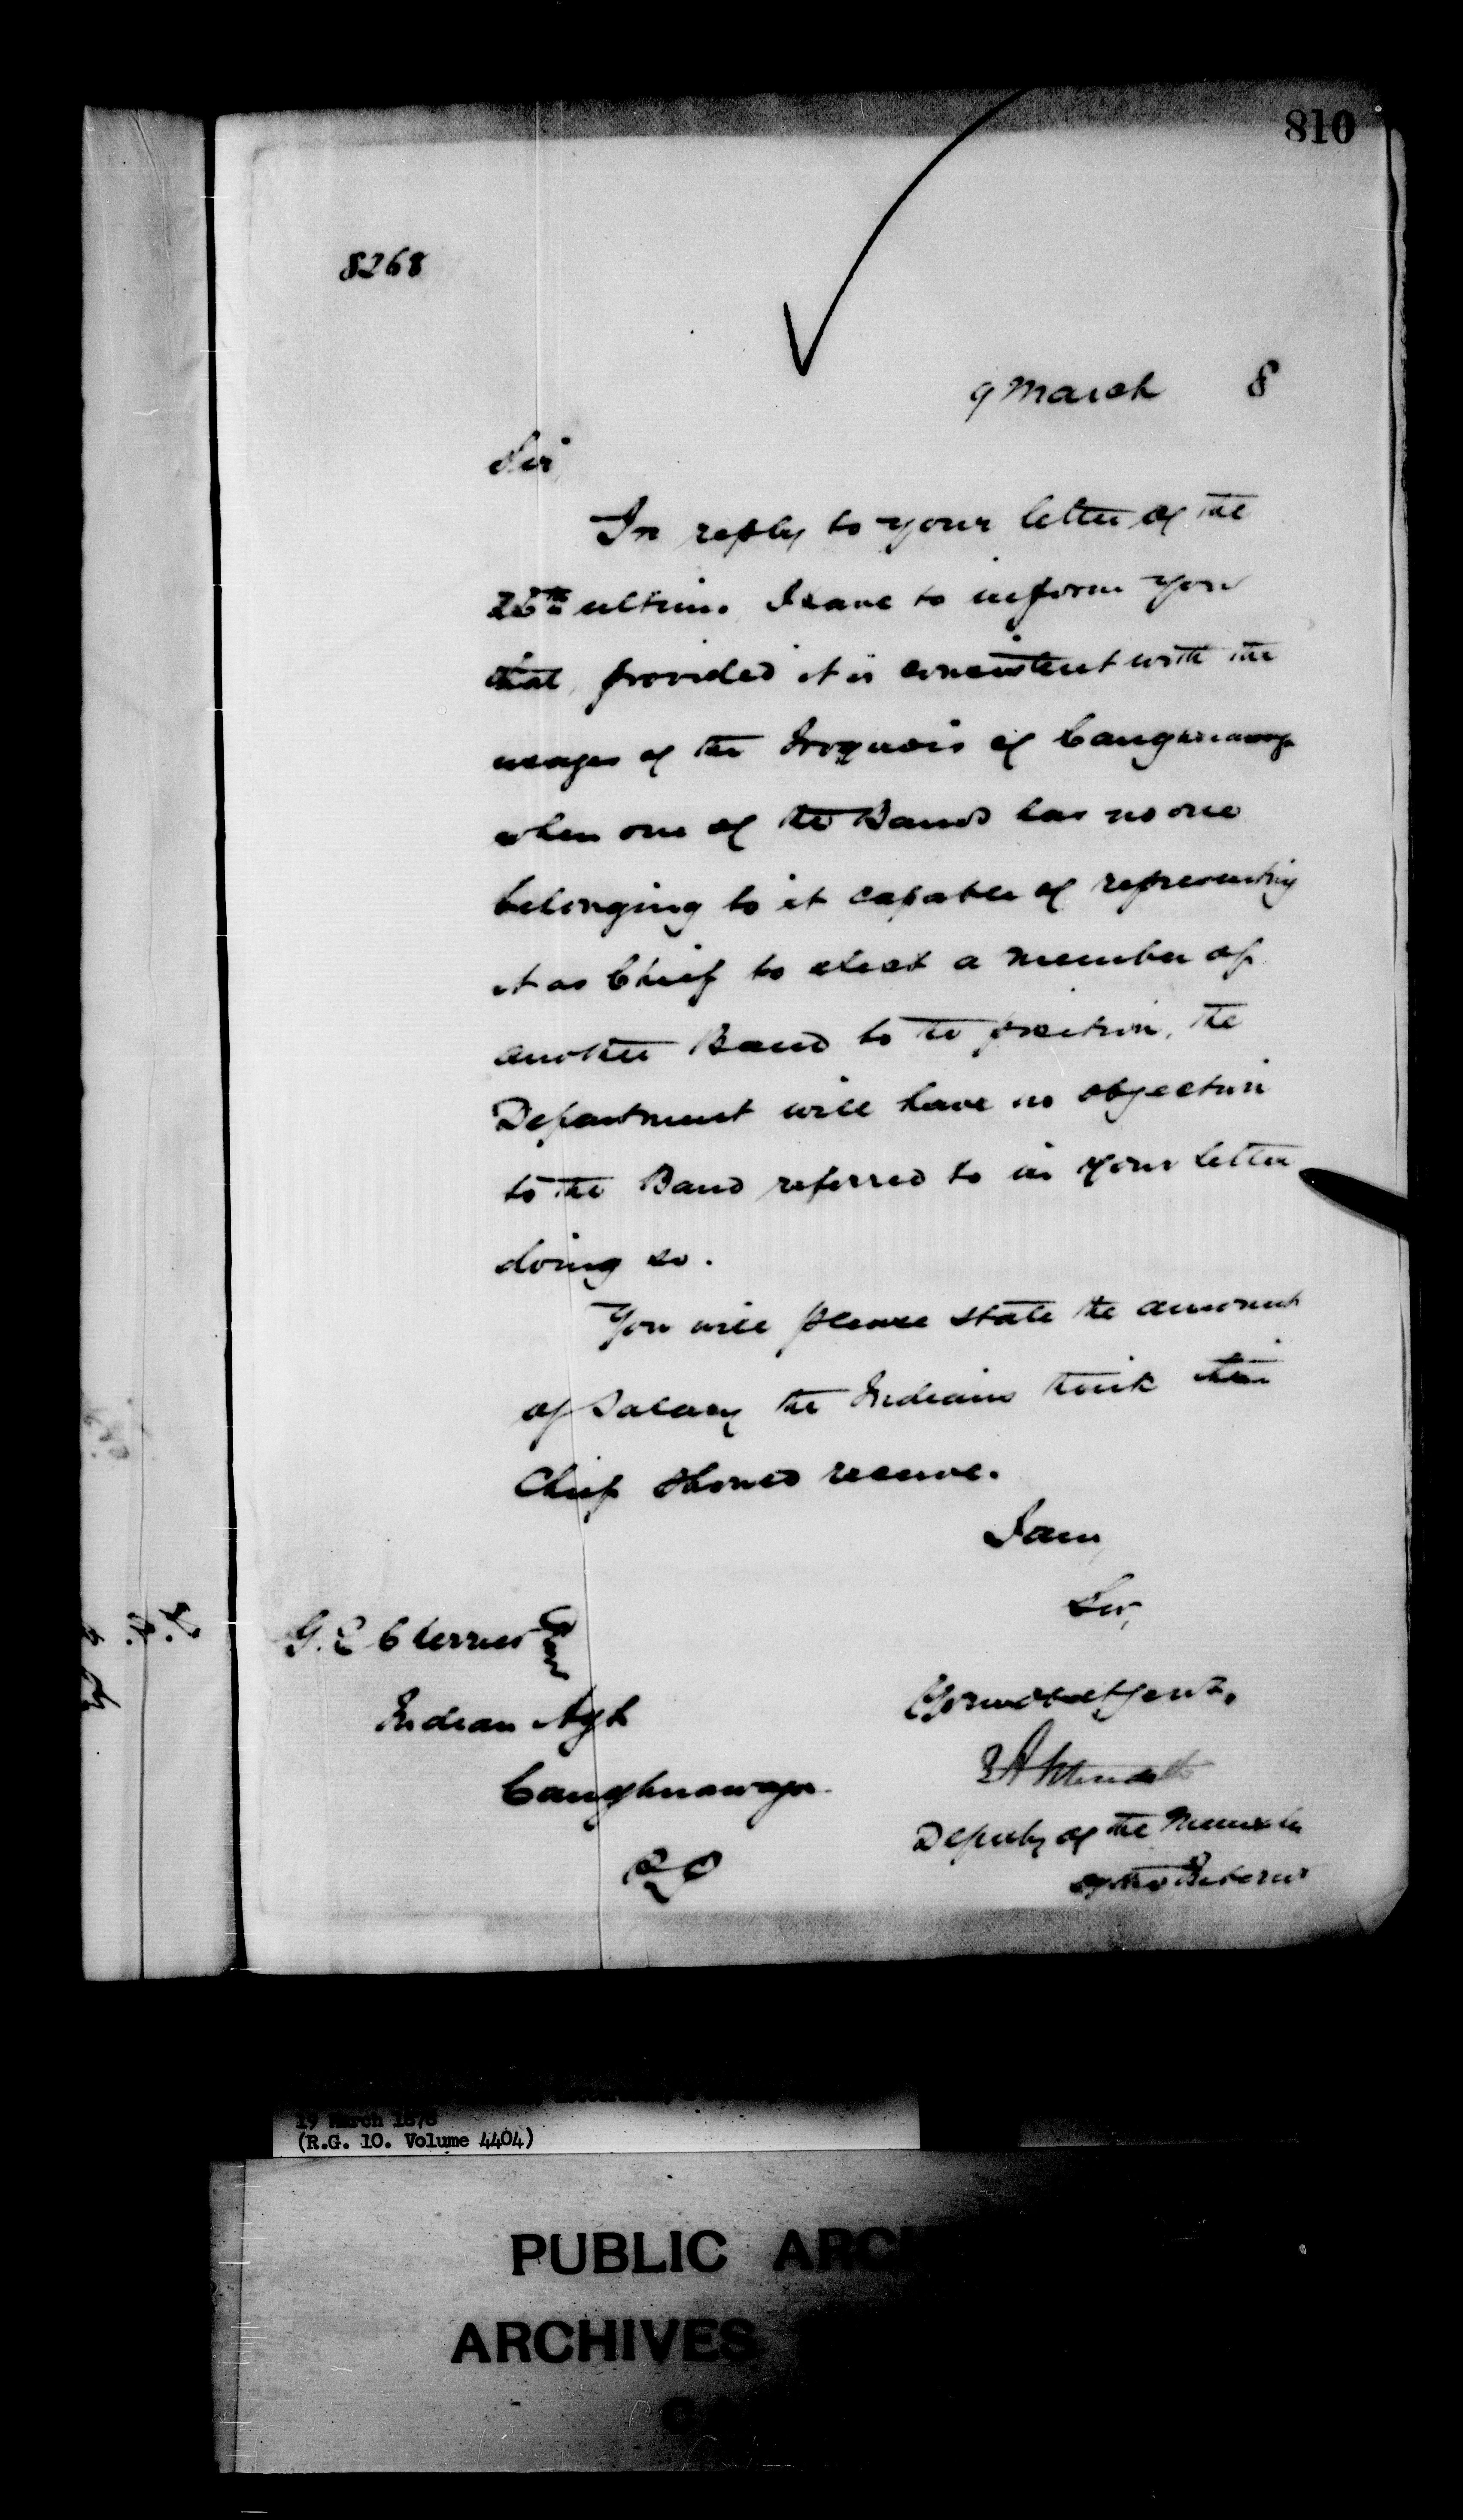 810
8268
9 March 8
Sir,
In reply to your letter of the
26th ultimo. I have to inform you
that, provided it is consistent with the
usages of the Iroquois of Caughnawaga
when one of the Bands has no one
belonging to it capable of representing
it as Chief to elect a member of
another Band to the position, the
Department will have no objection
to the Band referred to in your letter
doing so.
You will please state the amount
of Salary the Indians think their
Chief should receive.
I am,
Sir,
G. E. Cherrier Esq
Indian Agt
Caughnawaga
P.Q
Your obedt Servt,
Deputy of the Minister
of the Interior
19 March 1878
(R.G. 10. Volume 4404)
PUBLIC ARCH
ARCHIVES